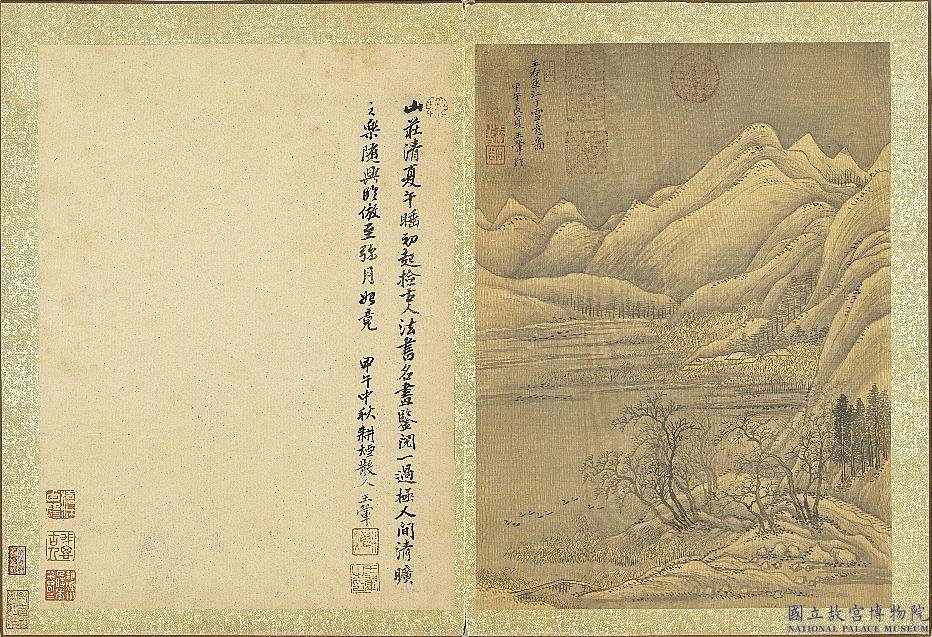 王右丞江干雪意圖
甲午長夏王翬臨
山莊清夏午睡初起撿古人法書名畫鑒閱一過極人間清曠
之樂隨興倣至彌月始竟 甲午中秋耕煙散人王翬
國立故宮博物院
NATIONAL PALACE MUSEUM